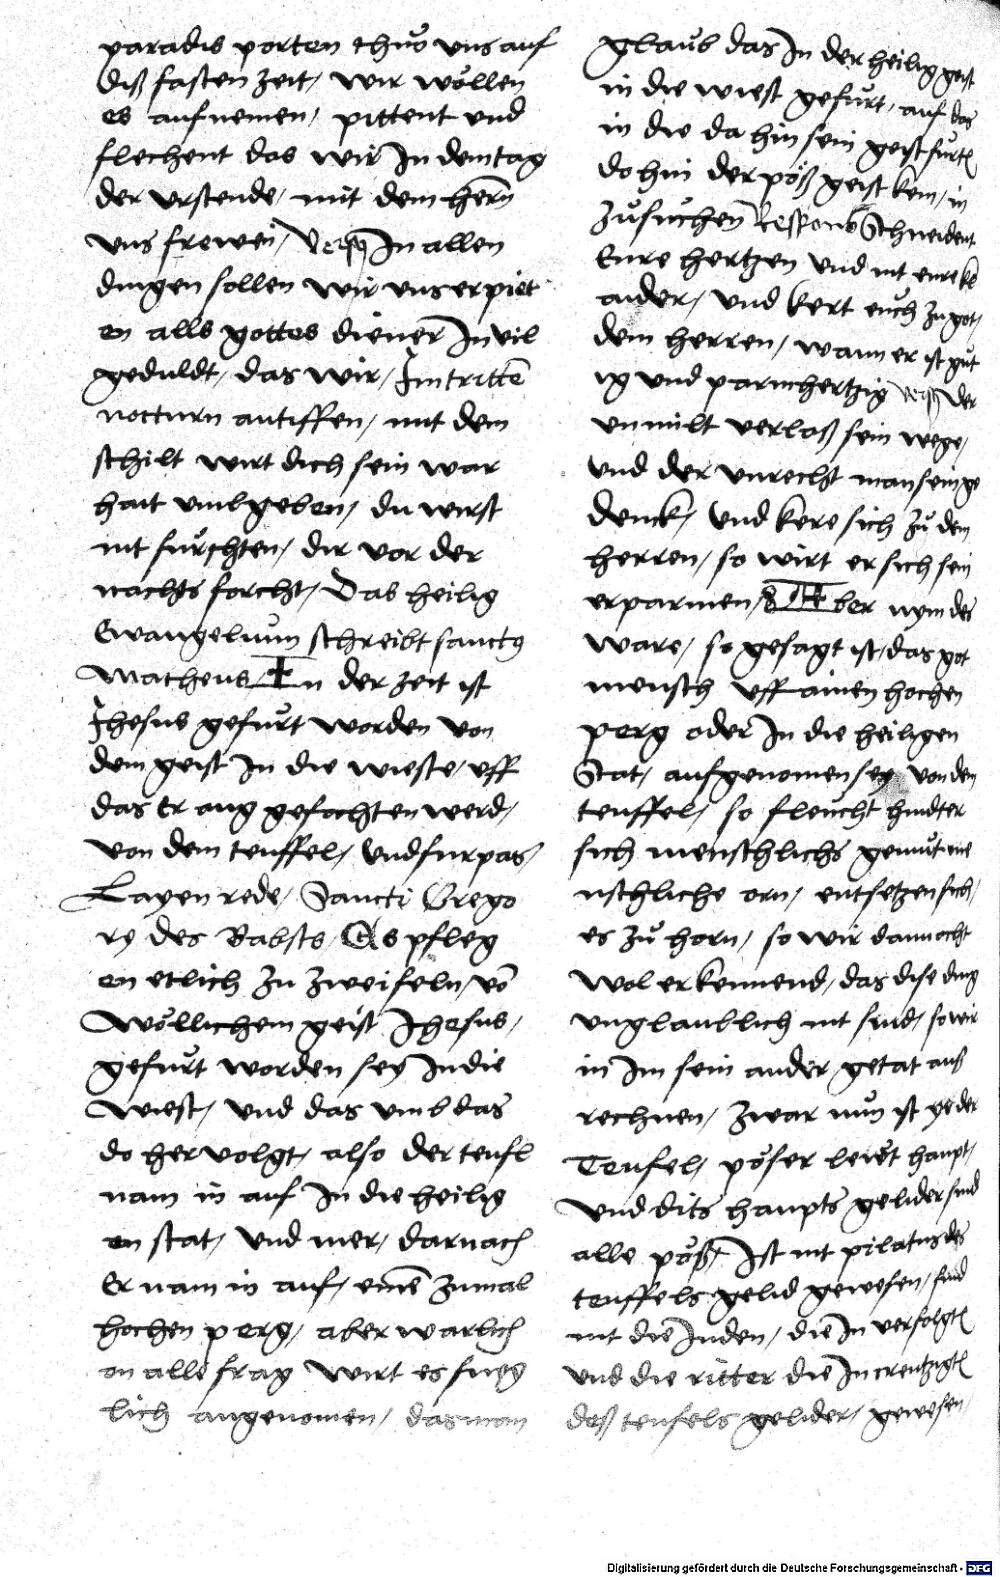 paradis porten thuͦ vns auf
diß fasten zeit / wir woͤllen
es aufnemen / pittent vnd
flechent das wir In dem tag
der vrstende / mit dem hern̄
vns frewen / Vers In allen
dingen sollen wir vns erpiet
en alls gottes diener In vil
geduldt / das wir / Im trittē
nocturn antiffen / mit dem
schilt wirt dich sein war
hait vmbgeben / du wirst
nit furchten / dir vor der
nachts forcht / Das heilig
Ewangelium schreibt sanctꝯ
Matheus / In der zeit ist
Jhesus gefuͤrt worden von
dem geist In die wieste / vff
das Er ang gefochten werd /
von dem teuffel / Vnd furpas /
Layen rede / Sancti Grego
ry des Babsts / Es pfleg
en etlich zu zweifeln / vō
woͤllichem geist Jhesus /
gefuͤrt worden sey In die
wiest / vnd das vmb das
do her volgt / also der teufl
nam in auf In die heilig
en stat / Vnd mer / darnach
Er nam in auf / einē zumal
hochen perg / aber warlich
on alle frag wirt es fueg
lich angenomen / das man
glaub das In der heilig geist
in die wiest gefuͤrt / auf das
in die da hin sein geist fuͤrt
do hin der poͤß geist kem / in
zuͦsuchen Respons Schneident
Eure hertzen vnd nit eure kl
aider / vnd kert euch zu got /
dem herren / wann er ist guͤt
ig vnd parmhertzig vers Der
vnmilt verlaß sein wege /
vnd der vnrecht man sein ge
denck / Vnd kere sich zuͦ dem
herren / so wirt er sich sein
erparmen / Aber nym des
ware / so gesagt ist / das got
mensch vff ainen hochen
perg oder In die heiligen
Stat / aufgenomen sey von dem
teuffel / so fleucht hindter
sich menschlichs gemuͤt me
nschliche orn / entsetzen sich /
es zuͦ horn / so wir dannocht
wol erkennend / das dise ding
vnglaublich nit sind / so wir
in Im sein ander getat auß
rechnen / zwar nun ist ye der
Teufel / poͤser leiͤt haupt /
vnd dits haupts gelider sind
alle poͤß / Ist nit pilatus des
teuffels gelid gewesen / sind
nit die Juden / die In verfolgt
vnd die ritter die In creutzigt
deß teufels gelider / gewesen /
Digitalisierung gefördert durch die Deutsche Forschungsgemeinschaft - DFG